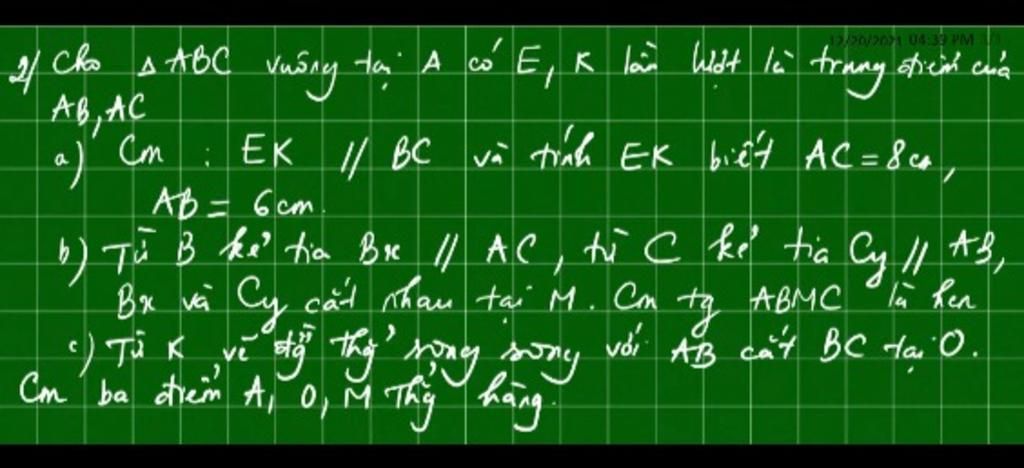 12/20/2021 04:39 PM
2/ Cho △ ABC vuông tại A có E, K lần lượt là trung điểm của
AB, AC
a) Cm : EK // BC và tính EK biết AC = 8cm,
AB = 6cm.
b) Từ B kẻ tia Bx // AC, từ C kẻ tia Cy // AB,
Bx và Cy cắt nhau tại M. Cm tg ABMC là hcn
c) Từ K vẽ đg thẳg song song với AB cắt BC tại O.
Cm ba điểm A, O, M thẳg hàng.